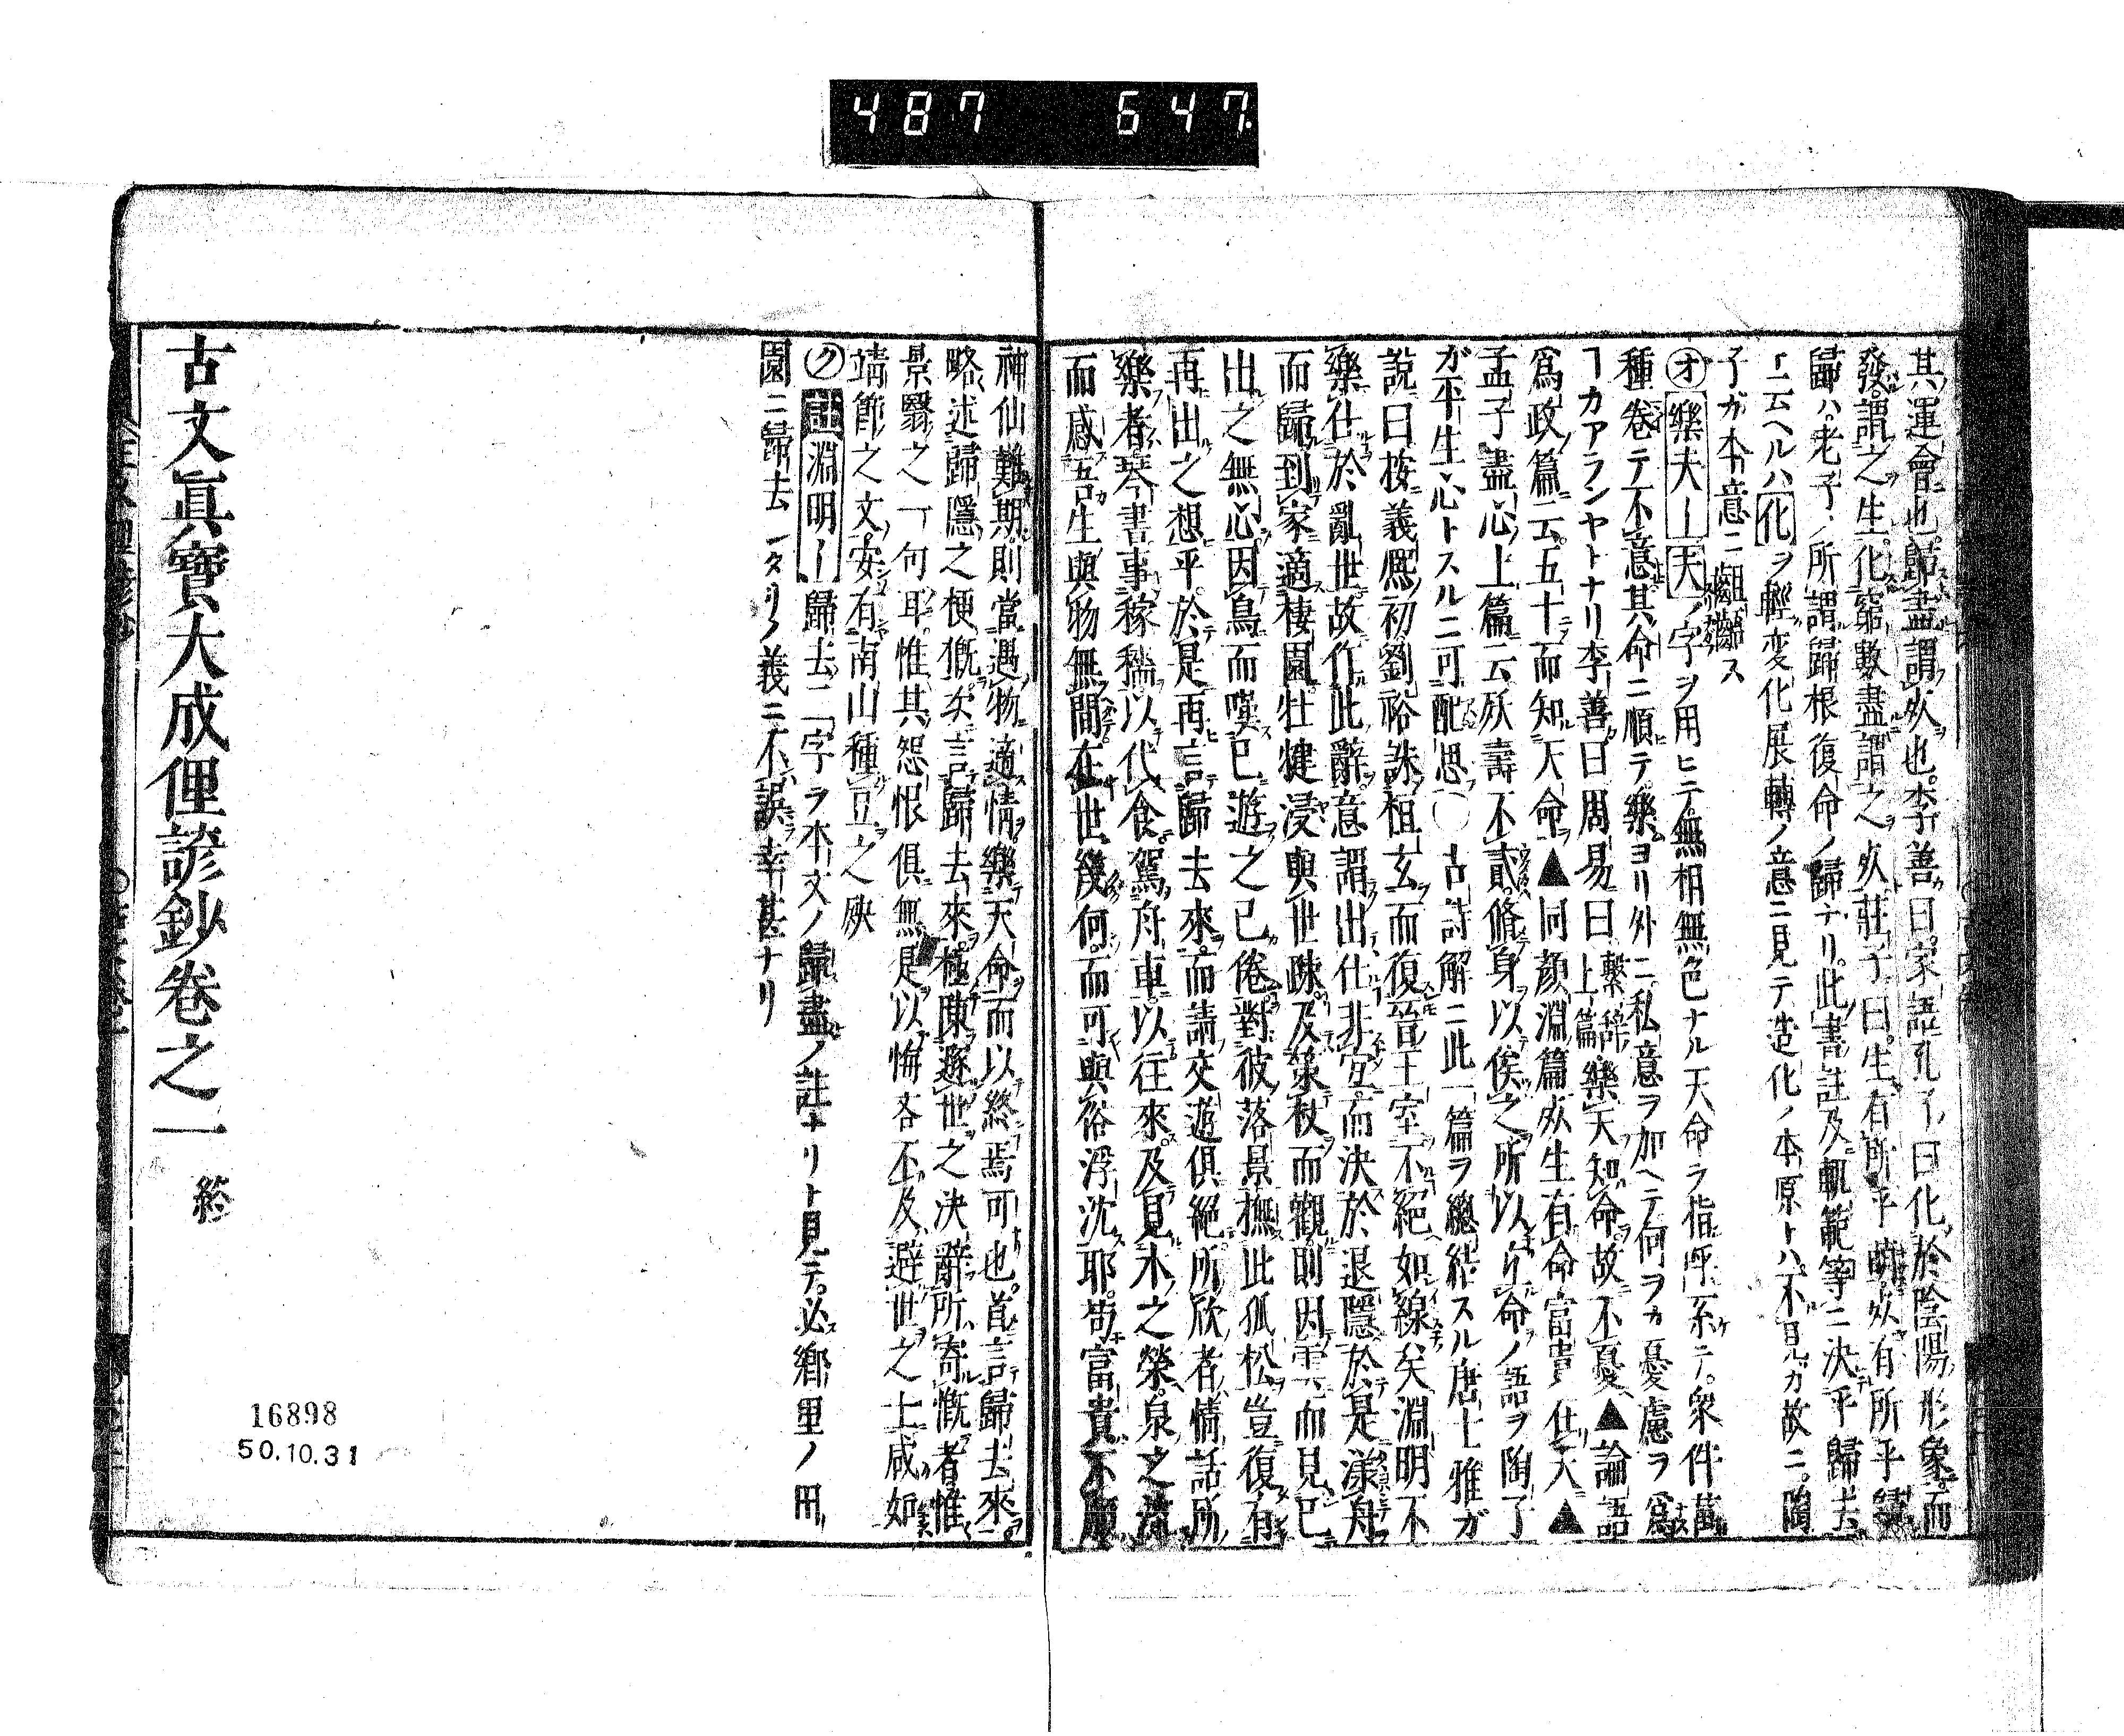 487 647
其運會也歸盡謂死也李善曰家語孔子曰化於陰陽形象而
發謂之生化窮數盡謂之死莊子曰生有所乎萌死有所乎歸
歸ハ老子ノ所謂歸根復命ノ歸ナリ此書註及軌範等ニ決乎歸去
ト云ヘルハ化ヲ輕変化展轉ノ意ニ見テ造化ノ本原トハ不見カ故ニ陶
子ガ本意ニ齟齬ス
オ樂夫ー天ノ字ヲ用ヒニ無相無色ナル天命ヲ指呼系テ衆件萬
種巻テ不意其命ニ順テ樂ヨリ外ニ私意ヲ加ヘテ何ヲカ憂慮ヲ爲
ヿカアランヤトナリ李善曰周易曰繫辞上篇樂天知命故不憂▲論語
爲政篇云五十而知天命▲同顔淵篇死生有命富貴在天▲
孟子盡心上篇云殀壽不貳脩身以俟之所以立命ノ語ヲ陶子
ガ平生心トスルニ可配思○古詩解ニ此一篇ヲ總結スル唐士雅ガ
說曰按義熙初劉裕誅桓玄而復晉王室不絕如線矣淵明不
樂仕於亂世故作此辭意謂出仕非宜而決於退隱於是漾舟
而歸到家適棲園牡犍浸與世疎及策杖而觀則因雲而見已
出之無心因鳥而嘆已遊之已倦對彼落景撫此孤松豈復有
再出之想乎於是再言歸去來而請交遊俱絕所欣者情話所
樂者琴書事稼穡以代食駕舟車以往來及見木之榮泉之流
而感吾生與物無間在世幾何而可與俗浮沈耶苟富貴不願
神仙難期則當遇物適情樂天命而以終焉可也首言歸去來
略述歸隱之梗槪次言歸去來極陳遯世之決辭所寄慨者惟
景翳之一句耳惟其怨恨俱無是以悔吝不及避世之士咸如
靖節之文安有南山種豆之殃
ク註淵明ー歸去ニ字ヲ本文ノ歸盡ノ註ナリト見テ必鄉里ノ田
園ニ歸去一タリノ義ニ不誤幸甚ナリ
古文眞寶大成俚諺鈔卷之一終
16898
50.10.31